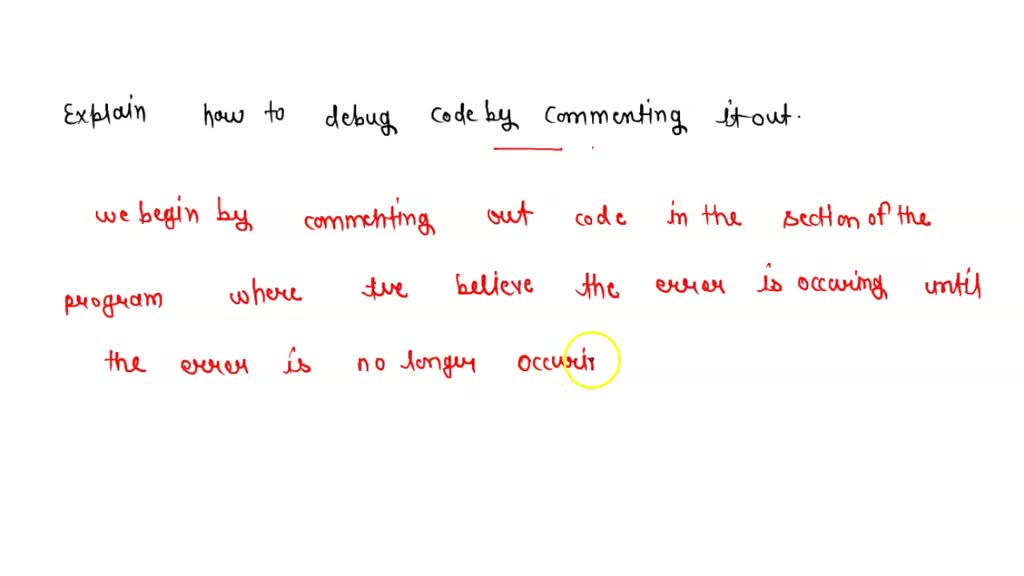 Explain how to debug code by commenting it out.
we begin by commenting out code in the section of the
program where we believe the error is occuring until
the error is no longer occurin